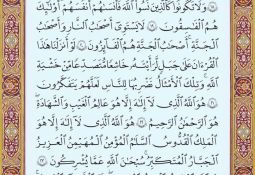 وَلَا تَكُونُوا۟ كَٱلَّذِينَ نَسُوا۟ ٱللَّهَ فَأَنسَىٰهُمْ أَنفُسَهُمْ أُو۟لَٰٓئِكَ
هُمُ ٱلْفَٰسِقُونَ ١٩ لَا يَسْتَوِىٓ أَصْحَٰبُ ٱلنَّارِ وَأَصْحَٰبُ
ٱلْجَنَّةِ أَصْحَٰبُ ٱلْجَنَّةِ هُمُ ٱلْفَآئِزُونَ ٢٠ لَوْ أَنزَلْنَا هَٰذَا
ٱلْقُرْءَانَ عَلَىٰ جَبَلٍ لَّرَأَيْتَهُۥ خَٰشِعًا مُّتَصَدِّعًا مِّنْ خَشْيَةِ
ٱللَّهِ وَتِلْكَ ٱلْأَمْثَٰلُ نَضْرِبُهَا لِلنَّاسِ لَعَلَّهُمْ يَتَفَكَّرُونَ ٢١
هُوَ ٱللَّهُ ٱلَّذِى لَآ إِلَٰهَ إِلَّا هُوَ عَٰلِمُ ٱلْغَيْبِ وَٱلشَّهَٰدَةِ
هُوَ ٱلرَّحْمَٰنُ ٱلرَّحِيمُ ٢٢ هُوَ ٱللَّهُ ٱلَّذِى لَآ إِلَٰهَ إِلَّا هُوَ
ٱلْمَلِكُ ٱلْقُدُّوسُ ٱلسَّلَٰمُ ٱلْمُؤْمِنُ ٱلْمُهَيْمِنُ ٱلْعَزِيزُ
ٱلْجَبَّارُ ٱلْمُتَكَبِّرُ سُبْحَٰنَ ٱللَّهِ عَمَّا يُشْرِكُونَ ٢٣